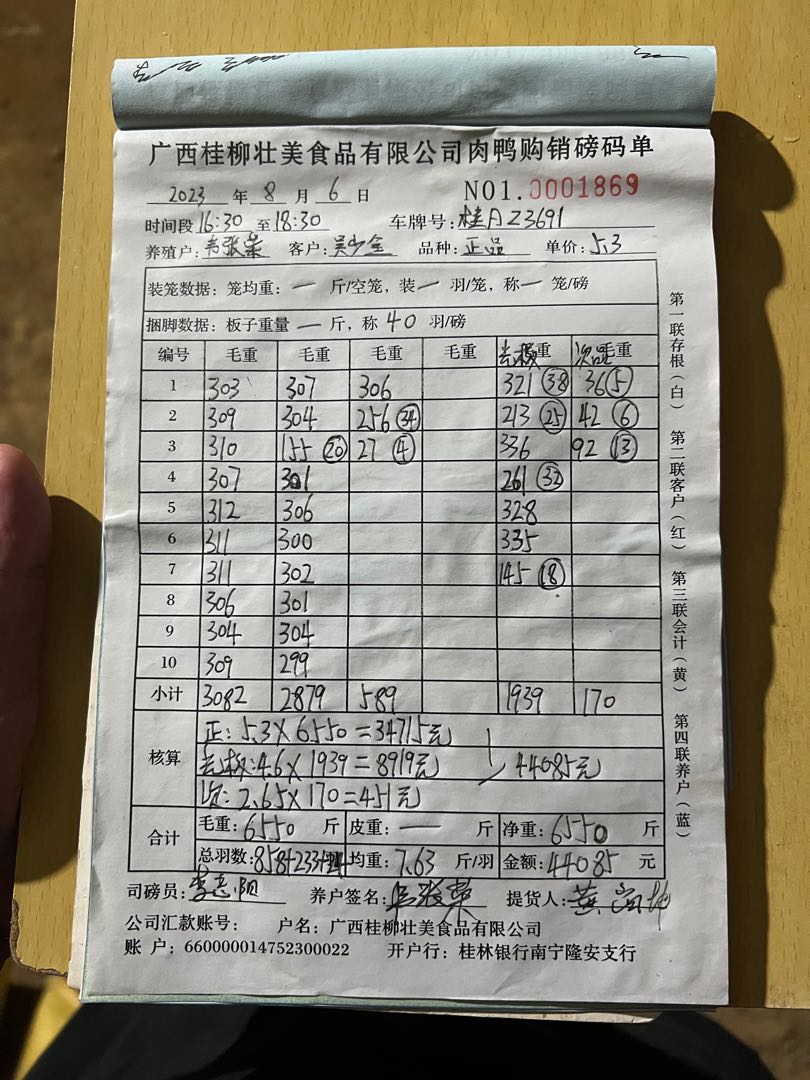 广西桂柳壮美食品有限公司肉鸭购销磅码单
2023 年 8 月 6 日 NO1.0001869
时间段 16:30 至 18:30 车牌号: 桂A Z3691
养殖户: 韦张荣 客户: 吴少全 品种: 正品 单价: 5.3
装笼数据: 笼均重: 一 斤/空笼, 装 一 羽/笼, 称 一 笼/磅
捆脚数据: 板子重量 一 斤, 称 40 羽/磅
编号 毛重 毛重 毛重 毛重 毛重 次品 毛重
1 303 307 306 321 38 36 5
2 309 304 256 34 213 25 42 6
3 310 155 20 27 4 336 92 13
4 307 301 261 32
5 312 306 328
6 311 300 335
7 311 302 145 18
8 306 301
9 304 304
10 309 299
小计 3082 2879 589 1939 170
核算 正: 5.3 × 6550 = 34715元
4.6 × 1939 = 8919元 44085元
次: 2.65 × 170 = 451元
合计 毛重: 6550 斤 皮重: 一 斤 净重: 6550 斤
总羽数: 858+233+24 均重: 7.63 斤/羽 金额: 44085 元
司磅员: 李志阳 养户签名: 韦张荣 提货人: 黄
公司汇款账号: 户名: 广西桂柳壮美食品有限公司
账 户: 660000014752300022 开户行: 桂林银行南宁隆安支行
第一联存根(白) 第二联客户(红) 第三联会计(黄) 第四联养户(蓝)